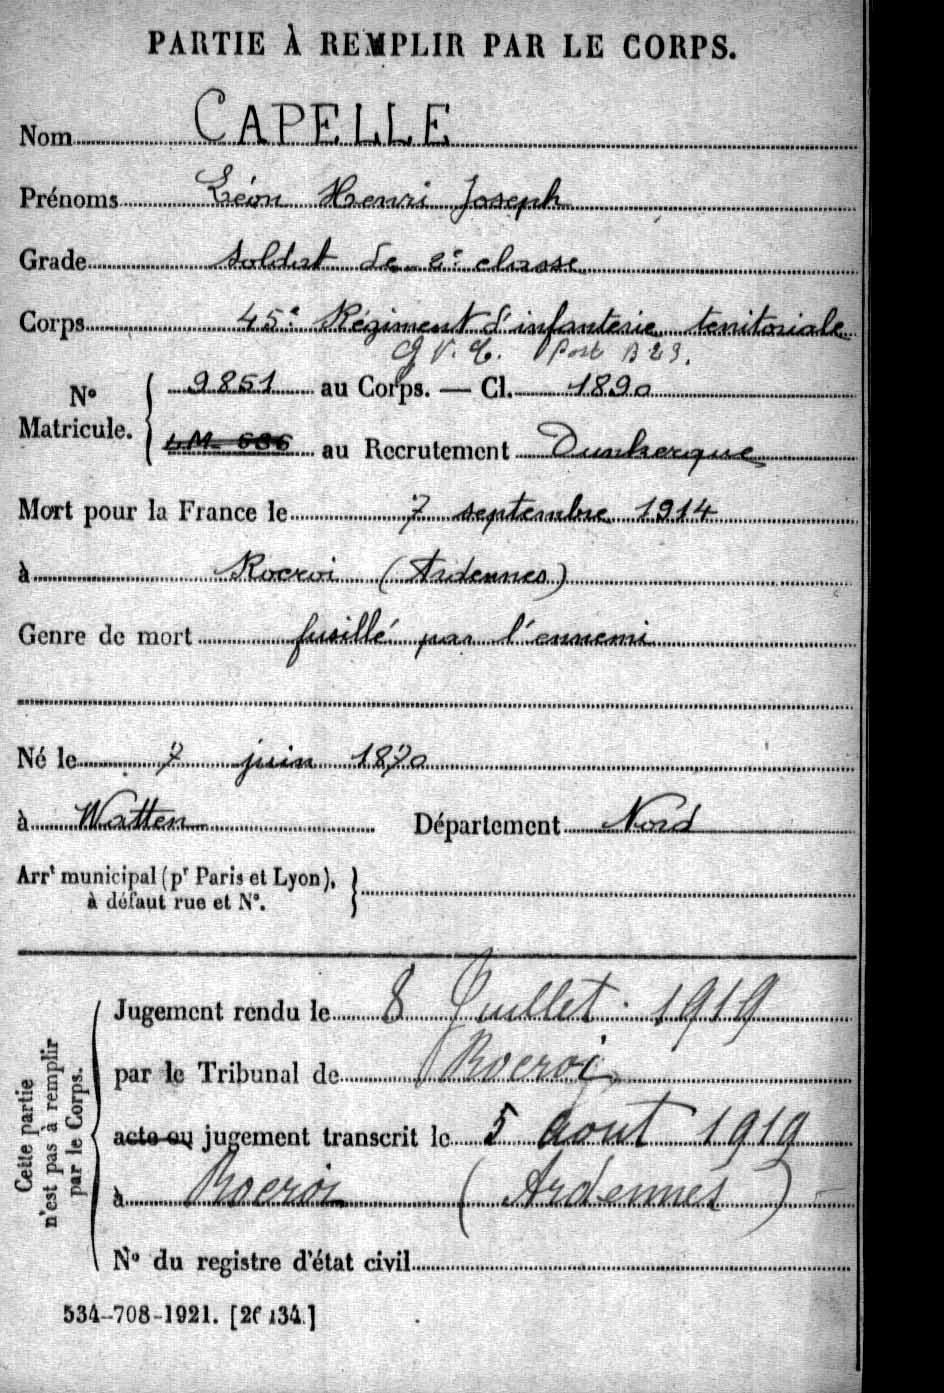 PARTIE À REMPLIR PAR LE CORPS.
Nom CAPELLE
Prénoms Léon Henri Joseph
Grade Soldat de 2e classe
Corps 45e Régiment d'infanterie territoriale
G.V.C. Post B 23.
No Matricule. { 9851 au Corps. — Cl. 1890
LM 686 au Recrutement Dunkerque
Mort pour la France le 7 septembre 1914
à Rocroi (Ardennes)
Genre de mort fusillé par l'ennemi
Né le 7 juin 1870
à Watten Département Nord
Arrt municipal (pr Paris et Lyon),
à défaut rue et No.
Cette partie n'est pas à remplir par le Corps.
Jugement rendu le 8 Juillet 1919
par le Tribunal de Rocroi
acte ou jugement transcrit le 5 août 1919
à Rocroi (Ardennes)
No du registre d'état civil
534-708-1921. [26134.]